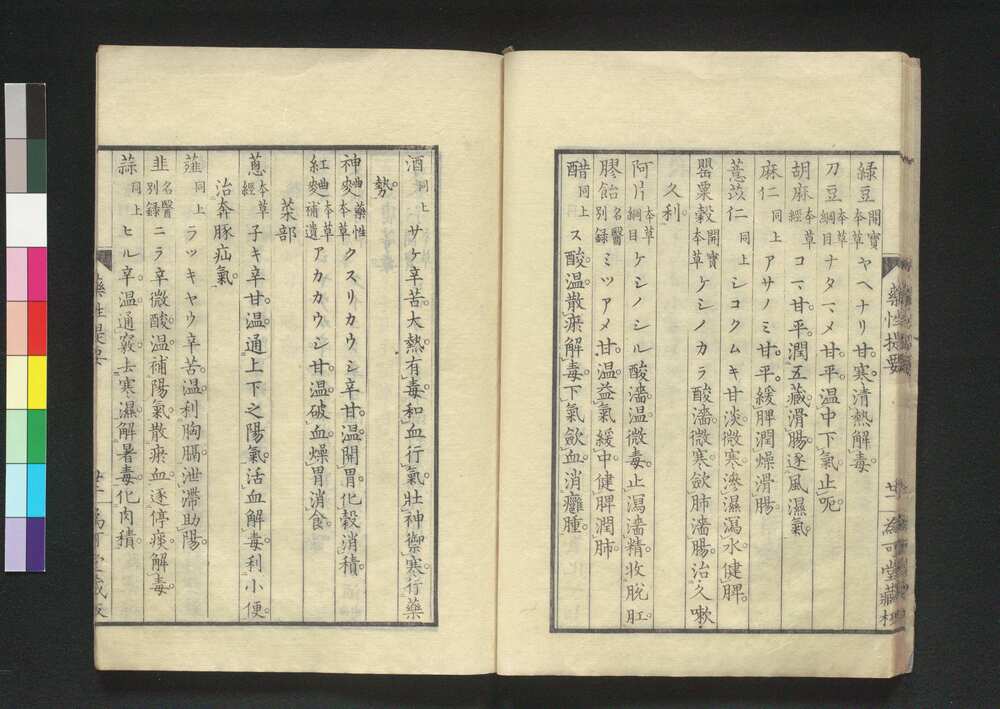 綠豆 開寶本草 ヤヘナリ甘。寒清熱解毒。
刀豆 本草綱目 ナタマメ甘。平温中下氣止呃
胡麻 本草經 コマ甘。平潤五藏滑腸。逐風濕氣
麻仁 同上 アサノミ甘。平。緩脾潤燥滑腸
薏苡仁 同上 シコクムキ甘淡。微寒滲濕瀉水健脾。
罌粟殼 開寶本草 ケシノカラ酸濇。微寒斂肺濇腸治久嗽
久利。
阿片 本草綱目 ケシノシル酸濇温微毒。止瀉濇精收脫肛。
膠飴 名醫別録 ミツアメ甘。温益氣緩中健脾潤肺
醋 同上 ス酸。温散瘀解毒下氣斂血消癰腫。
藥性提要
廿一 爲可堂藏板
酒 同上 サケ辛苦大熱。有毒。和血行氣。壯神禦寒。行藥
勢。
神麴 藥性本草 クスリカウシ辛甘。温。開胃化穀消積。
紅麴 本草補遺 アカカウシ甘。温。破血燥胃消食。
菜部
蔥 本草經 子キ辛甘。温。通上下之陽氣。活血解毒利小便。
治奔豚疝氣。
薤 同上 ラツキヤウ辛苦。温利胸膈泄滯助陽。
韭 名醫別録 ニラ辛微酸。温補陽氣散瘀血逐停痰解毒。
蒜 同上 ヒル辛。温通竅去寒濕解暑毒化肉積
藥性提要
廿二 爲可堂藏板